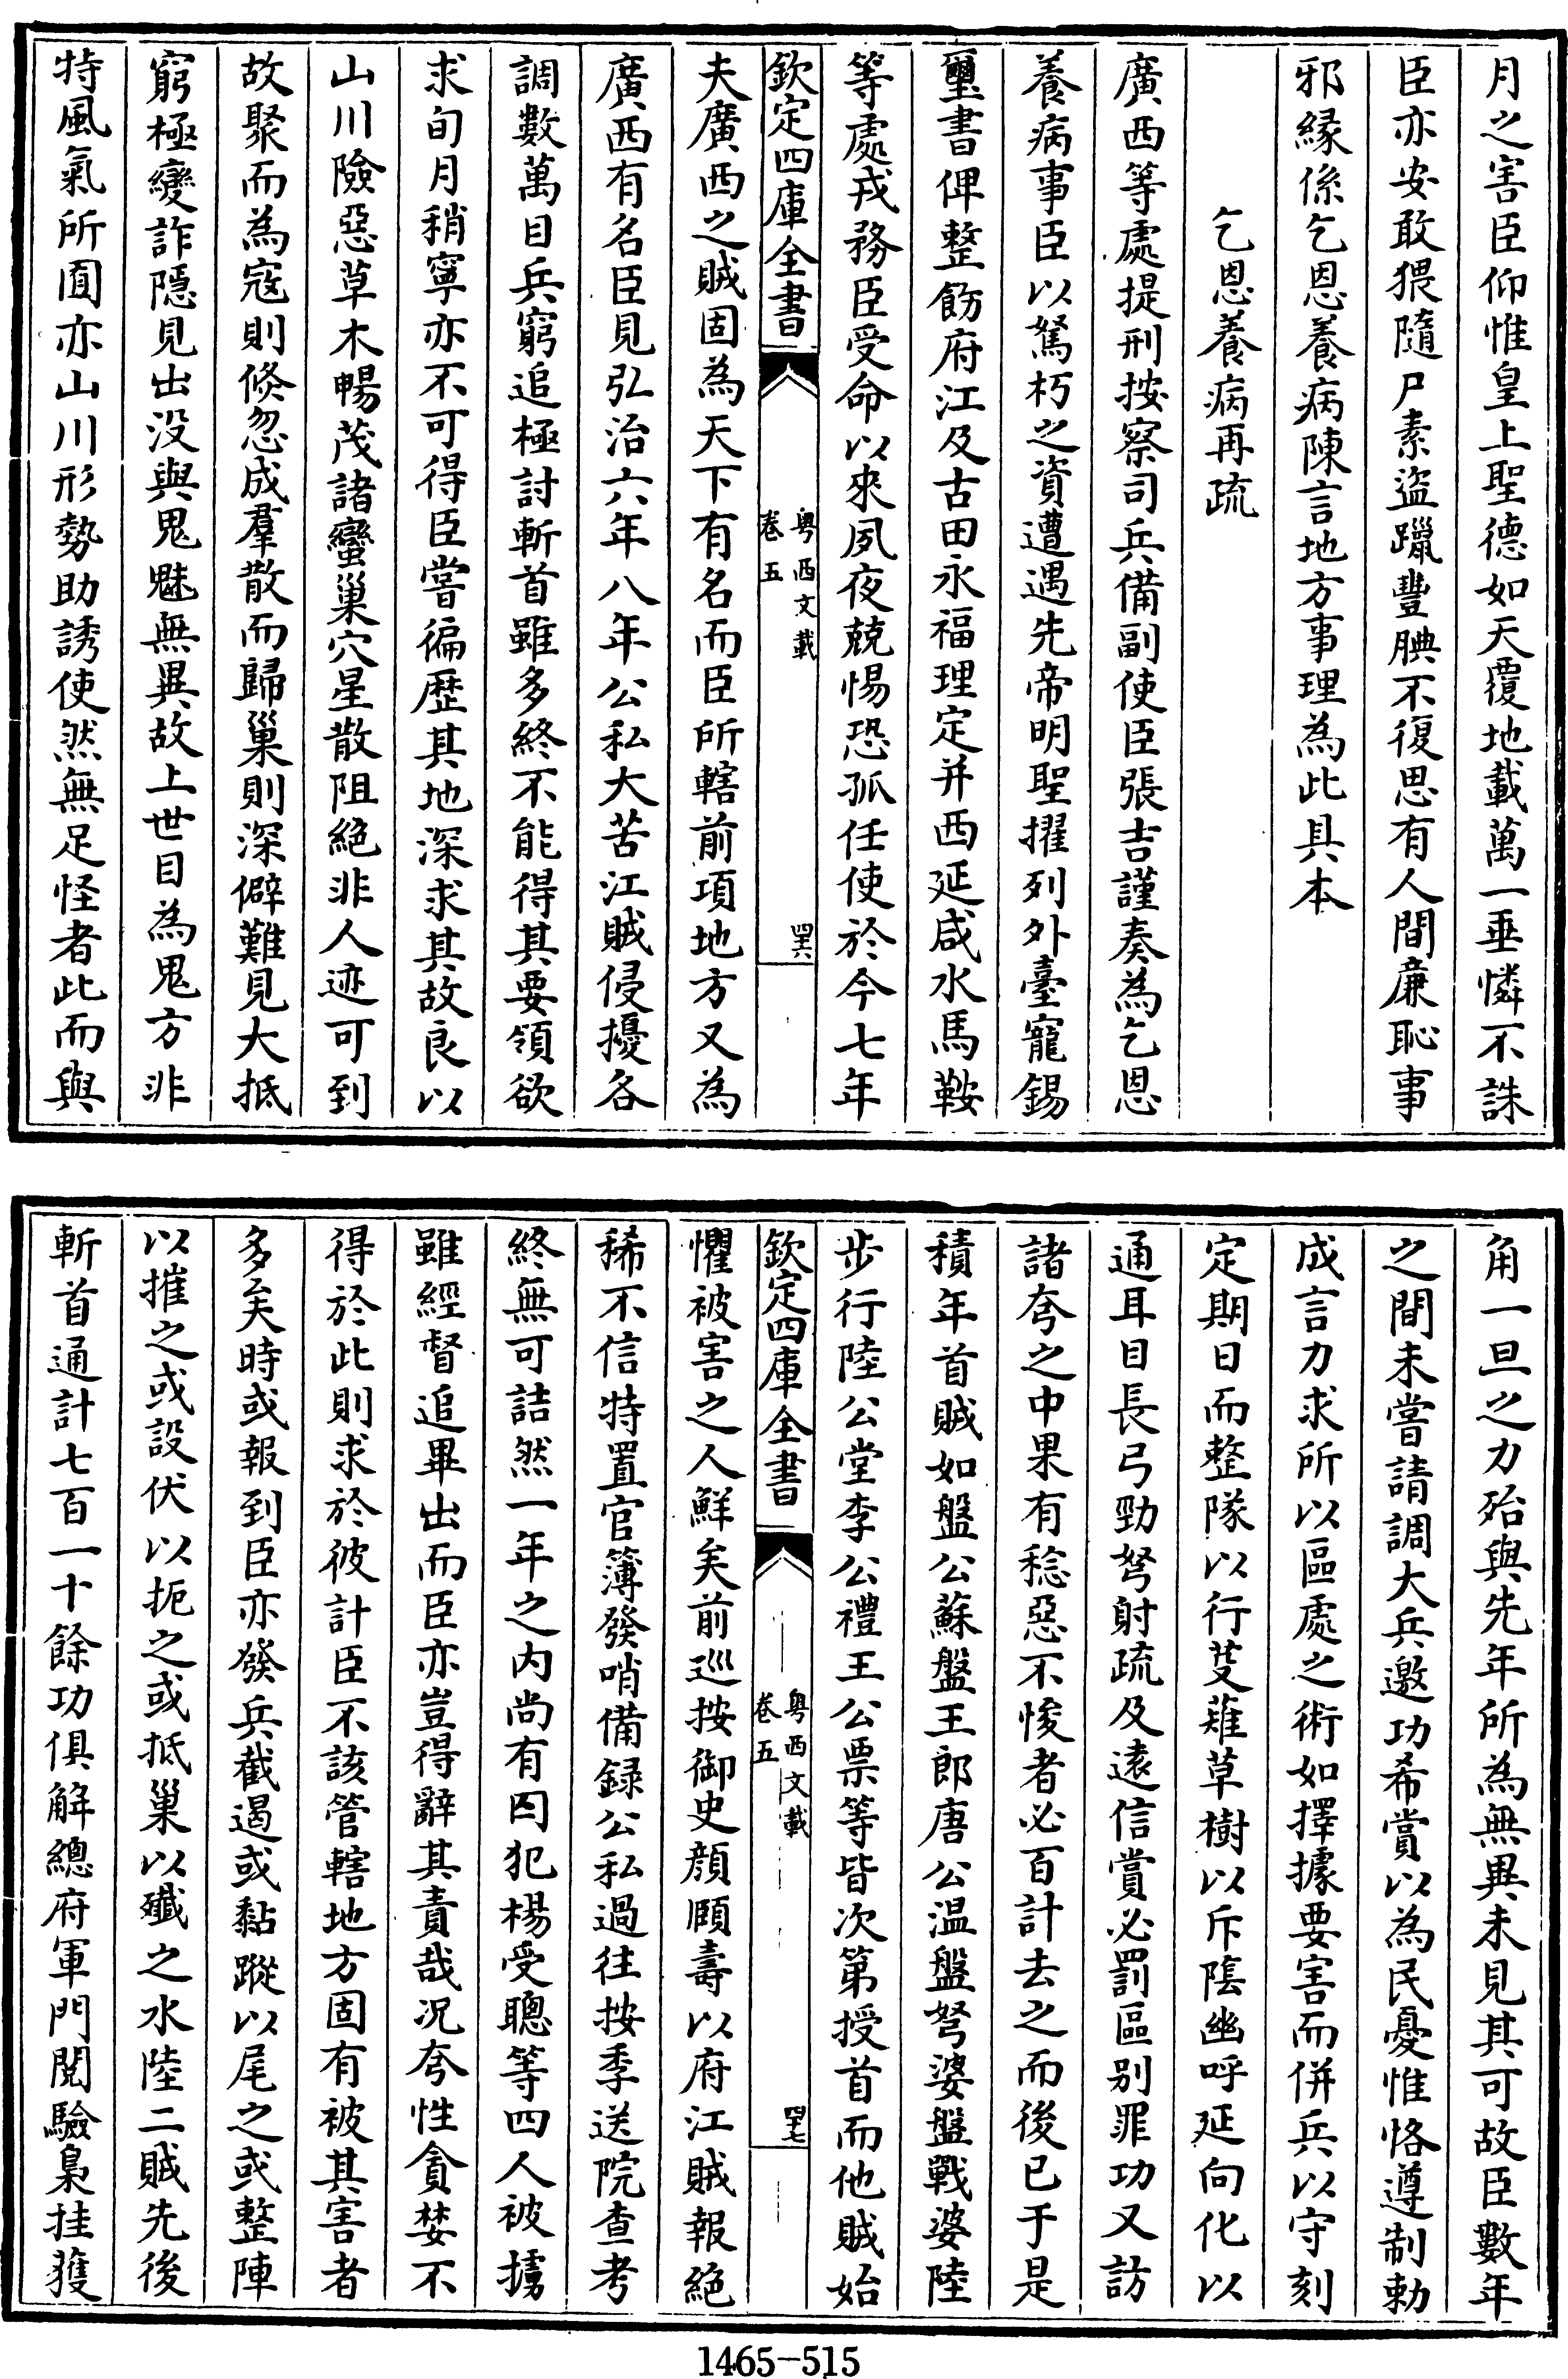 月之害臣仰惟皇上聖德如天覆地載萬一垂憐不誅
臣亦安敢猥隨尸素盜躐豐腆不復思有人間廉恥事
邪縁係乞恩養病陳言地方事理為此具本
乞恩養病再疏
廣西等處提刑按察司兵備副使臣張吉謹奏為乞恩
養病事臣以駑朽之資遭遇先帝明聖擢列外臺寵錫
璽書俾整飭府江及古田永福理定并西延咸水馬鞍
等處戎務臣受命以來夙夜兢惕恐孤任使於今七年
欽定四庫全書
粤西文載
卷五
四六
夫廣西之賊固為天下有名而臣所轄前項地方又為
廣西有名臣見弘治六年八年公私大苦江賊侵擾各
調數萬目兵窮追極討斬首雖多終不能得其要領欲
求旬月稍寧亦不可得臣嘗徧歴其地深求其故良以
山川險惡草木暢茂諸蠻巢穴星散阻絶非人迹可到
故聚而為寇則倐忽成羣散而歸巢則深僻難見大抵
窮極變詐隱見出没與鬼魅無異故上世目為鬼方非
特風氣所囿亦山川形勢助誘使然無足怪者此而與
角一旦之力殆與先年所為無異未見其可故臣數年
之間未嘗請調大兵邀功希賞以為民憂惟恪遵制勅
成言力求所以區處之術如擇據要害而併兵以守刻
定期日而整隊以行芟薙草樹以斥隂幽呼延向化以
通耳目長弓勁弩射疏及逺信賞必罰區别罪功又訪
諸夸之中果有稔惡不悛者必百計去之而後已于是
積年首賊如盤公蘇盤王郎唐公温盤弩婆盤戰婆陸
步行陸公堂李公禮王公票等皆次第授首而他賊始
欽定四庫全書
粤西文載
卷五
四七
懼被害之人鮮矣前巡按御史顔頤壽以府江賊報絶
稀不信特置官簿發哨備録公私過往按季送院查考
終無可詰然一年之内尚有囚犯楊受聰等四人被擄
雖經督追畢出而臣亦豈得辭其責哉况夸性貪婪不
得於此則求於彼計臣不該管轄地方固有被其害者
多矣時或報到臣亦發兵截遏或黏蹤以尾之或整陣
以摧之或設伏以扼之或抵巢以殱之水陸二賊先後
斬首通計七百一十餘功俱解總府軍門閲驗梟挂獲
1465-515